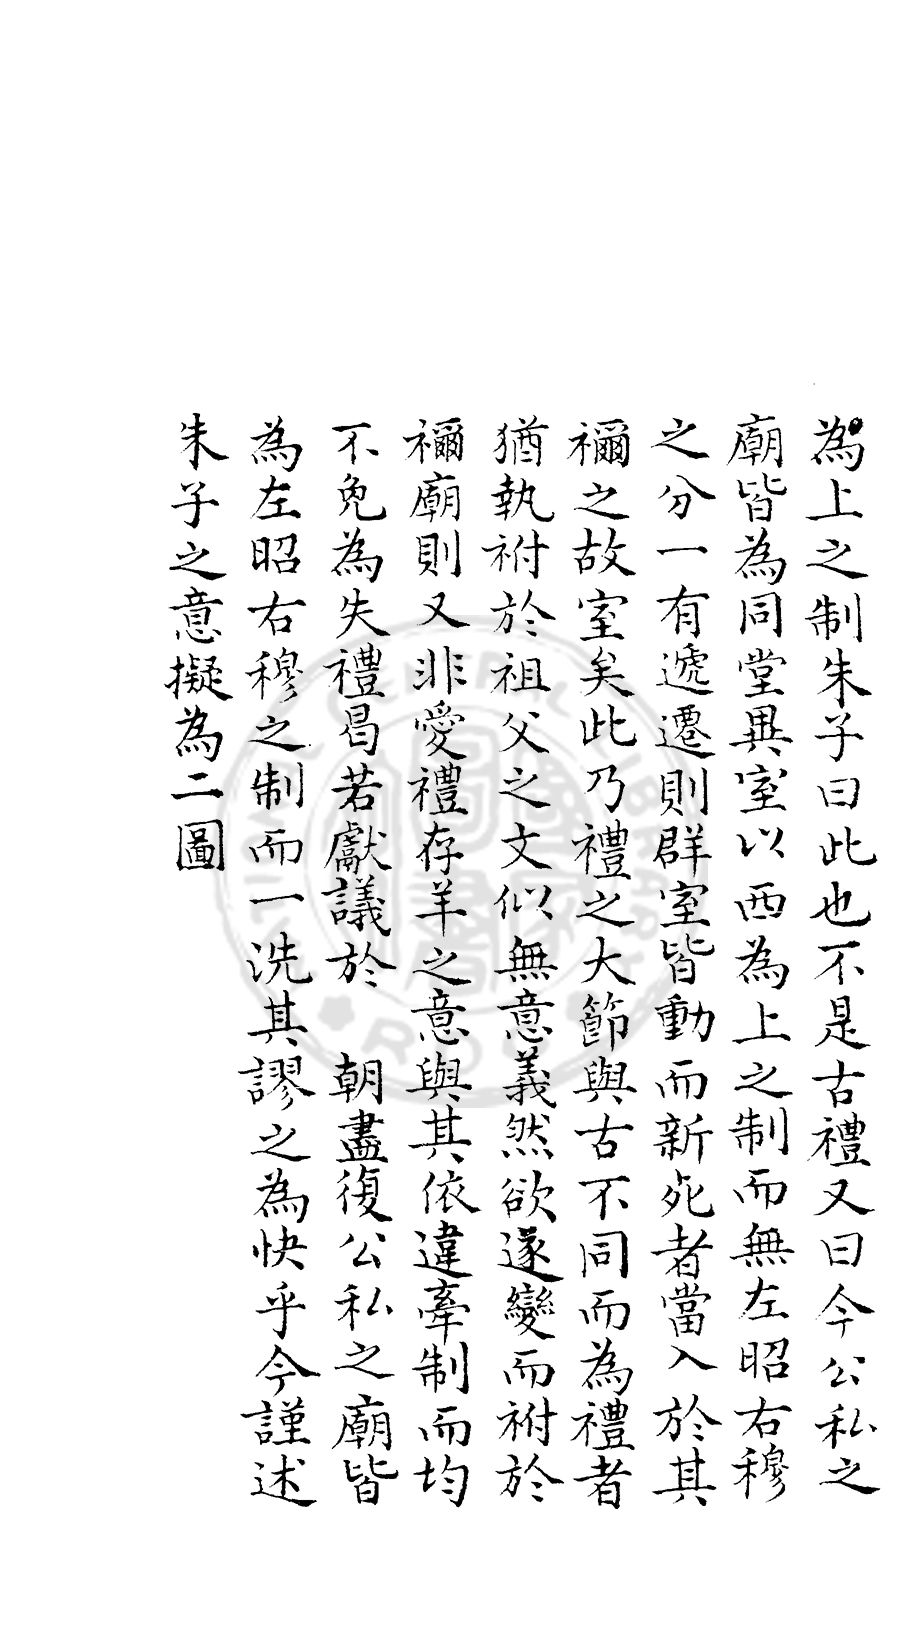 為上之制朱子曰此也不是古禮又曰今公私之
廟皆為同堂異室以西為上之制而無左昭右穆
之分一有遞遷則群室皆動而新死者當入於其
禰之故室矣此乃禮之大節與古不同而為禮者
猶執祔於祖父之文似無意義然欲遂變而祔於
禰廟則又非愛禮存羊之意與其依違牽制而均
不免為失禮曷若獻議於 朝盡復公私之廟皆
為左昭右穆之制而一洗其謬之為快乎今謹述
朱子之意擬為二圖